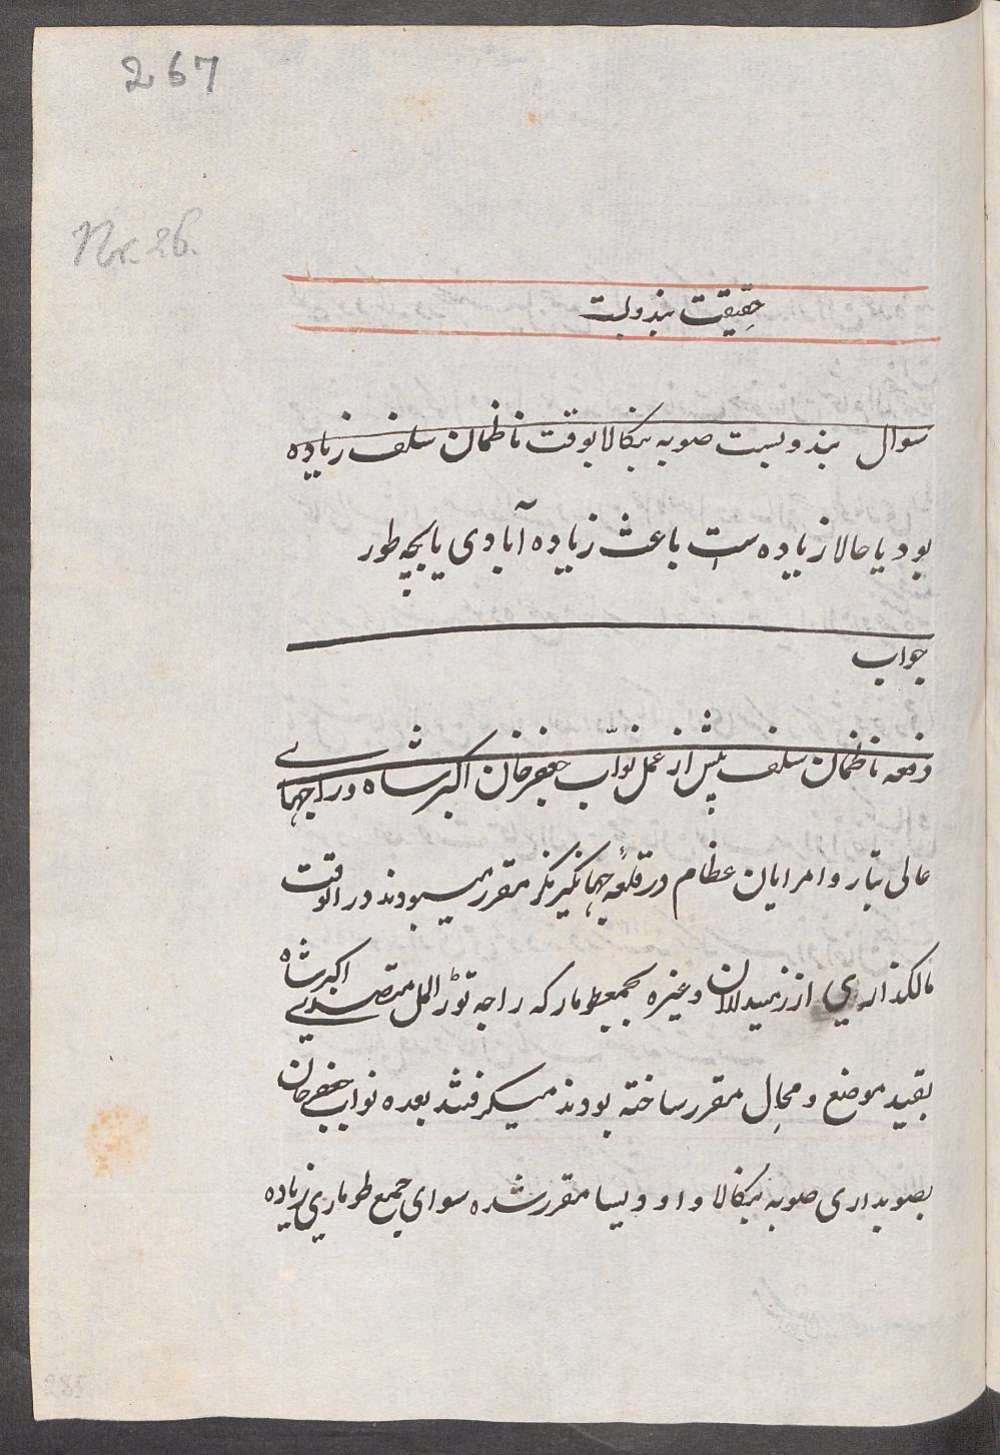 267
Nr. 26.
حقیقت بندوبست
سوال بندوبست صوبه بنکالا بوقت ناظمان سلف زیاده
بود یا حالا زیاده ست باعث زیاده آبادی یا بچه طور
جواب
دفعه ناظمان سلف پیش از عمل نوّاب جعفر خان اکبر شاهی در راجهای
عالی تبار و امرایان عظام در قلعهٔ جهانکیر نکر مقرر میبودند در انوقت
مالکذاري از زمیندااران وغیره بجمع طومار که راجه توڈرالمل متصدی اکبر شاه
بقید موضع و محال مقرر ساخته بودند میکرفتند بعده نواب جعفر خان
بصوبداری صوبه بنکالا و اوودیسا مقرر شده سوای جمع طوماري زیاده
285